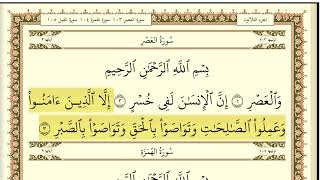 الجزء الثلاثون
سورة العصر ١٠٣ سورة الهمزة ١٠٤ سورة الفيل ١٠٥
سُورَةُ العَصْرِ
بِسْمِ ٱللَّهِ ٱلرَّحْمَٰنِ ٱلرَّحِيمِ
وَٱلْعَصْرِ ١ إِنَّ ٱلْإِنسَٰنَ لَفِى خُسْرٍ ٢ إِلَّا ٱلَّذِينَ ءَامَنُوا۟
وَعَمِلُوا۟ ٱلصَّٰلِحَٰتِ وَتَوَاصَوْا۟ بِٱلْحَقِّ وَتَوَاصَوْا۟ بِٱلصَّبْرِ ٣
سُورَةُ الهُمَزَةِ
بِسْمِ ٱللَّهِ ٱلرَّحْمَٰنِ ٱلرَّحِيمِ